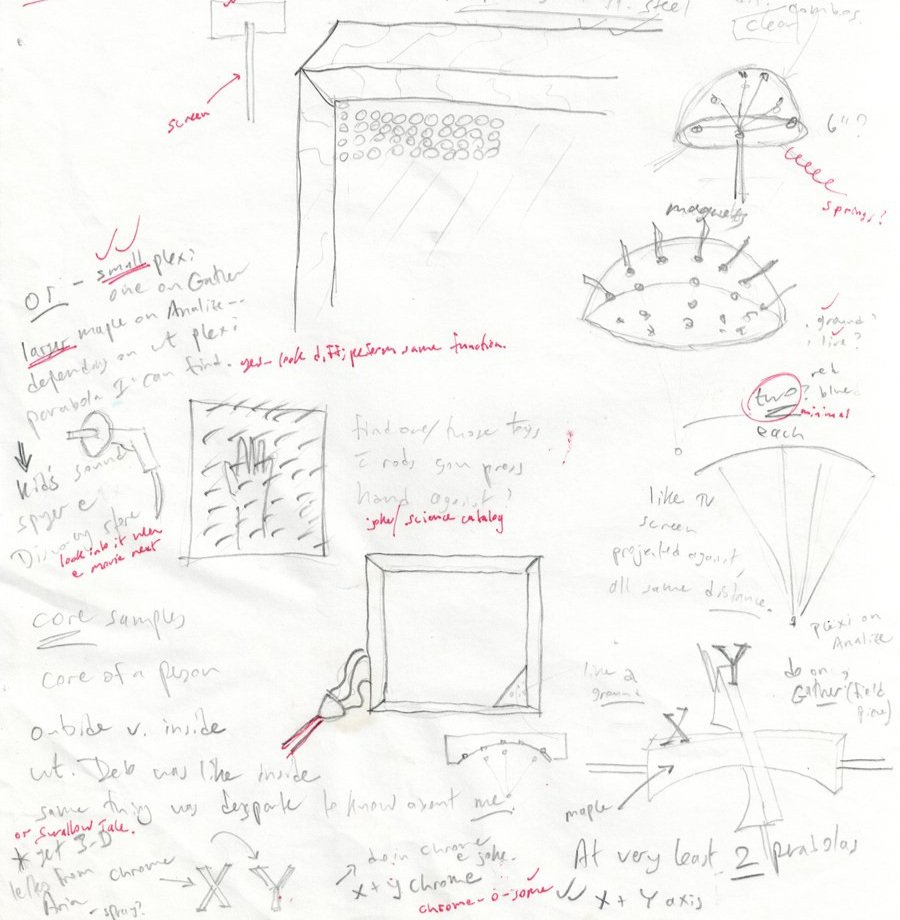 st. steel
combos
clear
screen
6"?
springs?
magnets
or - small plexi
one on Gather
larger maple on Analize--
depending on wt plexi
parabola I can find.
yes - look diff; perform same function.
ground?
live?
red
two? blue
minimal
each
Kid's sound
Discovery store
look into it when
e movie next
find one/those toys
rods you press
hand against?
joke/science catalog
like TV
screen
projected against
all same distance.
plexi on
Analize
core samples
core of a person
like a
ground
do on
Gather (field
piece)
Y
X
maple
outside v. inside
wt. Deb was like inside
same thing was desparate to know about me.
or Swallow Tale.
* get 3-D
letters from chrome
Aria
- spray?
X Y
do in chrome
e joke.
x + y chrome
chrome-o-some
At very least 2 parabolas
X + Y axis